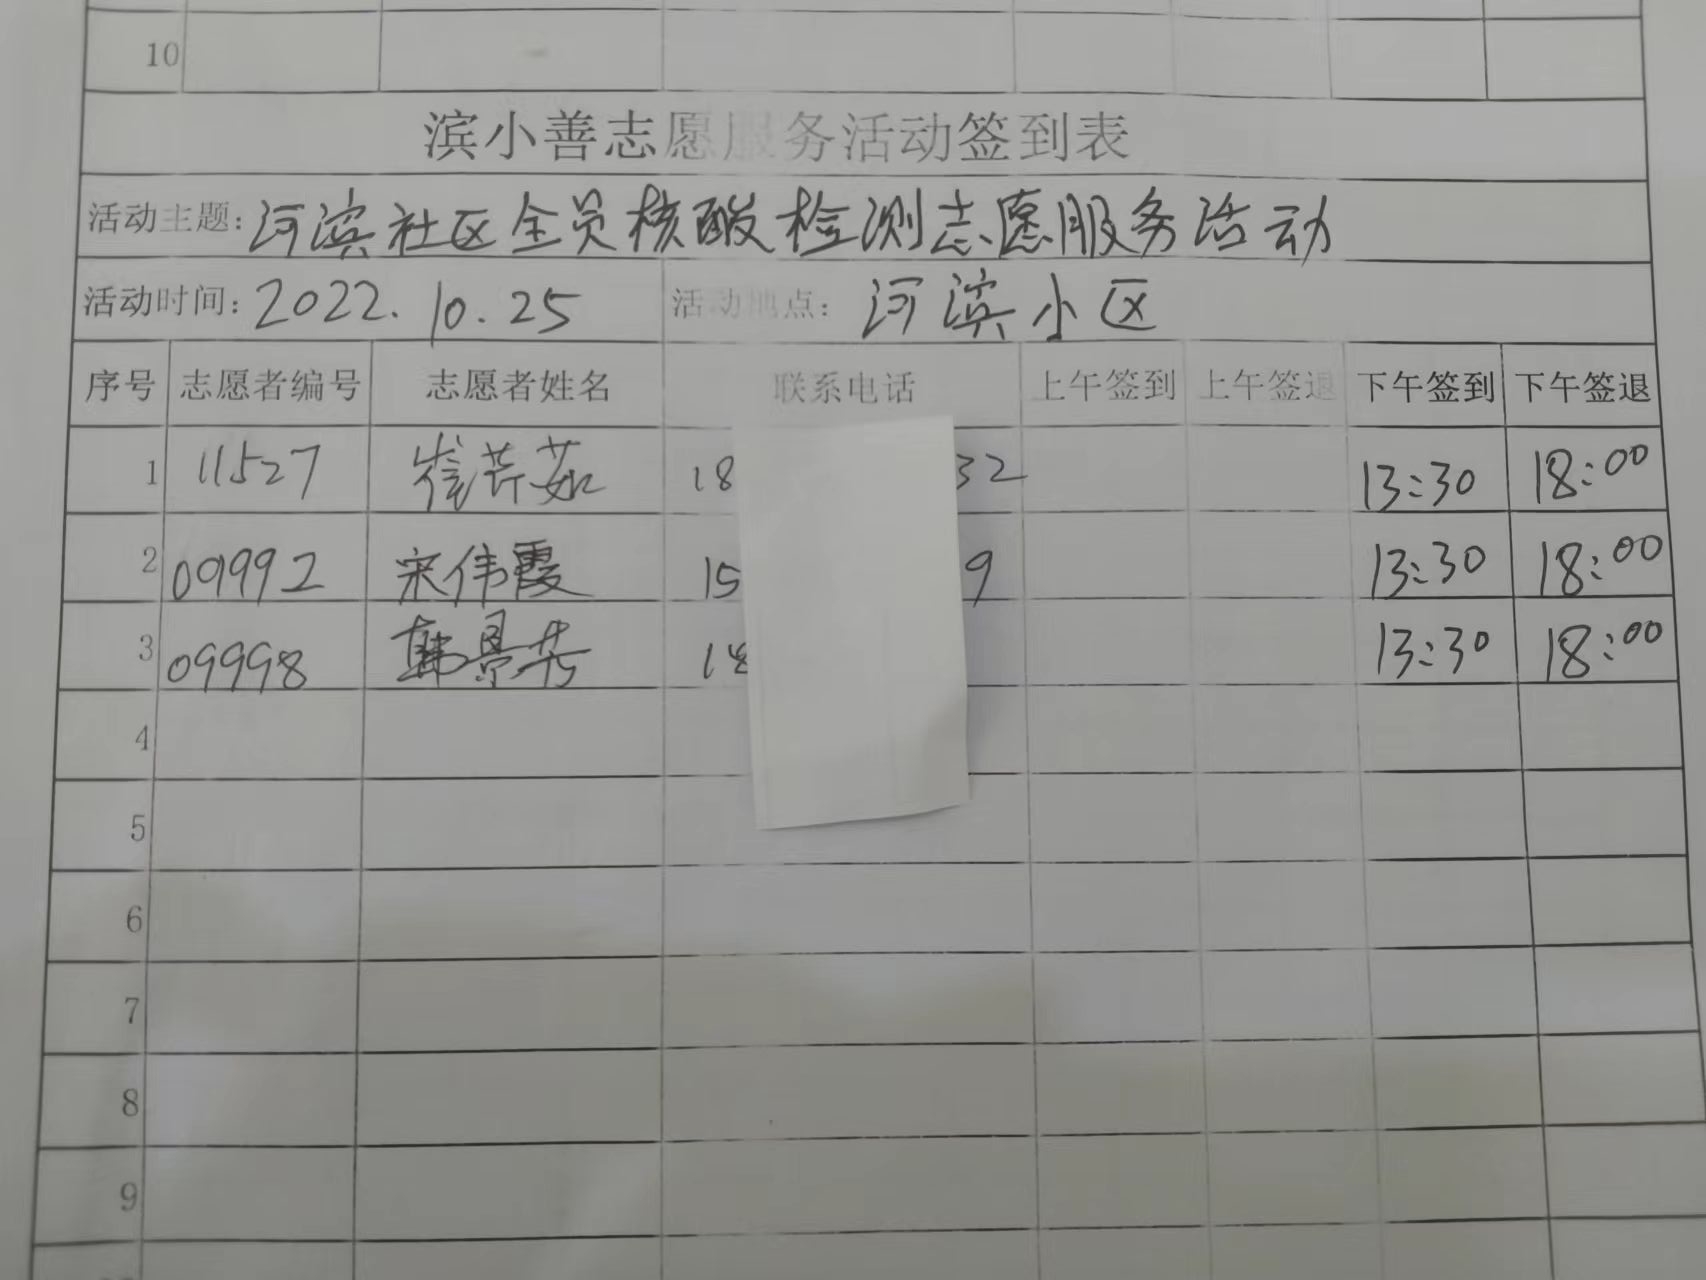 10
滨小善志愿服务活动签到表
活动主题:河滨社区全员核酸检测志愿服务活动
活动时间:2022.10.25 活动地点:河滨小区
序号 志愿者编号 志愿者姓名 联系电话 上午签到 上午签退 下午签到 下午签退
1 11527 崔芹茹 18 32 13:30 18:00
2 09992 宋伟霞 15 9 13:30 18:00
3 09998 韩景 18 13:30 18:00
4
5
6
7
8
9